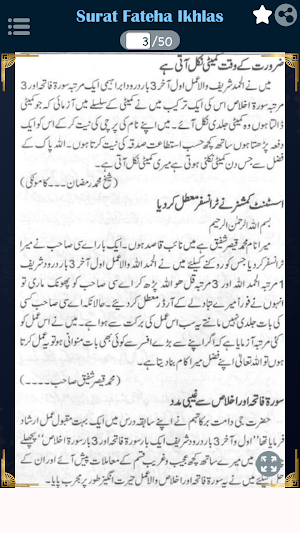 Surat Fateha Ikhlas
3 /50
ضرورت کے وقت کمیٹی نکل آتی ہے
میں نے الحمد شریف والا عمل اول آخر 3 بار درود ابراہیمی ایک مرتبہ سورۃ فاتحہ اور 3
مرتبہ سورۃ اخلاص اس کی ایک ترکیب میں نے کمیٹی کے سلسلے میں آزمائی کہ جو کمیٹی
ڈالتا ہوں وہ کمیٹی جلدی نکل آئے۔ میں اپنے نام کی پرچی کی نیت کر کے اس کو ایک
دفعہ پڑھتا ہوں ساتھ کچھ حسب استطاعت صدقہ کی نیت کرتا ہوں۔ اللہ پاک کے
فضل سے جس دن کمیٹی نکلنی ہوتی ہے میری کمیٹی نکل آتی ہے۔
(شیخ محمد رمضان۔۔۔ کامونکی)
اسسٹنٹ کمشنر نے ٹرانسفر معطل کر دیا
بسم اللہ الرحمٰن الرحیم
میرا نام محمد قیصر شفیق ہے میں نائب قاصد ہوں۔ ایک بار اے سی صاحب نے میرا
ٹرانسفر کر دیا جس کو روکنے کیلئے میں نے الحمد للہ والا عمل اول و آخر 3 بار درود شریف
1 مرتبہ الحمد للہ اور 3 مرتبہ قل ھو اللہ پڑھ کر اے سی صاحب کو پھونک ماری تو
انہوں نے فوراً میرے تبادلے کے آرڈر معطل کر دیئے۔ حالانکہ اے سی صاحب کسی
کی بات جلدی نہیں مانتے یہ سب اس عمل کی برکت سے ہوا ہے۔ میں نے اس عمل کو
کئی مرتبہ آزمایا ہے کہ اگر اپنے سے بڑے افسر سے کوئی بھی بات منوانی ہو تو یہ عمل کرتا
ہوں تو اللہ تعالیٰ اپنے فضل میرا کام بنا دیتا ہے۔
(محمد قیصر شفیق صاحب۔۔۔۔)
سورۃ فاتحہ اور اخلاص سے غیبی مدد
حضرت جی دامت برکاتہم نے اپنے سابقہ درس میں ایک بہت مقبول عمل ارشاد
فرمایا تھا "اول و آخر 3 بار درود شریف ایک بار سورۃ فاتحہ اور 3 بار سورۃ اخلاص" پچھلے
میں میرے ساتھ کچھ عجیب و غریب قسم کے معاملات پیش آئے اور ان کے
حل کیلئے میں نے یہ سورۃ فاتحہ اور اخلاص سے والا عمل حیرت انگیز طور پر مجرب پایا۔